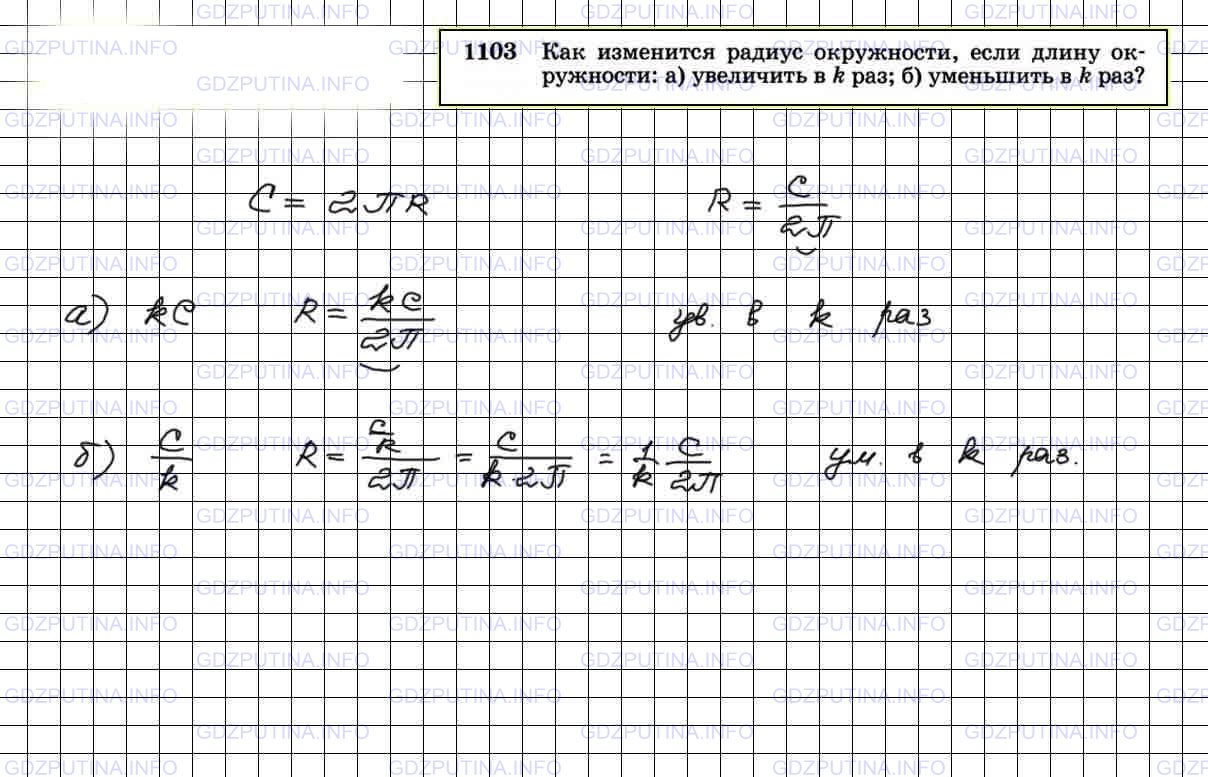 1103 Как изменится радиус окружности, если длину ок-
ружности: а) увеличить в k раз; б) уменьшить в k раз?
C = 2πR R = C/2π
а) kC R = kC/2π ув. в k раз
б) C/k R = C/k/2π = C/k·2π = 1/k C/2π ум. в k раз.
GDZPUTINA.INFO